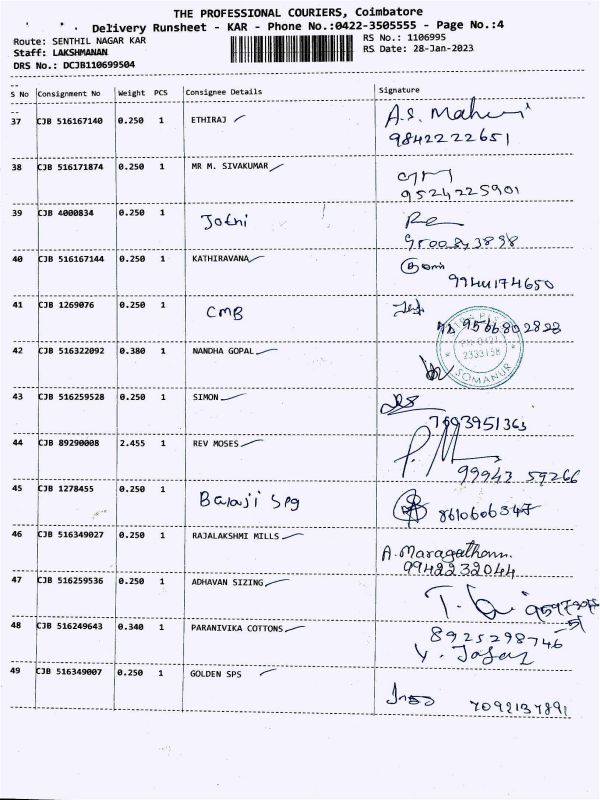 THE PROFESSIONAL COURIERS, Coimbatore
Delivery Runsheet - KAR - Phone No.:0422-3505555 - Page No.:4
Route: SENTHIL NAGAR KAR RS No.: 1106995
Staff: LAKSHMANAN RS Date: 28-Jan-2023
DRS No.: DCJB110699504
S No Consignment No Weight PCS Consignee Details Signature
37 CJB 516167140 0.250 1 ETHIRAJ
9842222651
38 CJB 516171874 0.250 1 MR M. SIVAKUMAR
9524225901
39 CJB 4000834 0.250 1 Jothi
40 CJB 516167144 0.250 1 KATHIRAVANA
9944174650
41 CJB 1269076 0.250 1 CMB
9566802823
42 CJB 516322092 0.380 1 NANDHA GOPAL
SOMANUR
43 CJB 516259528 0.250 1 SIMON
44 CJB 89290008 2.455 1 REV MOSES
99943 59266
45 CJB 1278455 0.250 1 Balaji Spg
8610606347
46 CJB 516349027 0.250 1 RAJALAKSHMI MILLS
A. Maragatham.
9942232044
47 CJB 516259536 0.250 1 ADHAVAN SIZING
48 CJB 516249643 0.340 1 PARANIVIKA COTTONS
8925298746
49 CJB 516349007 0.250 1 GOLDEN SPS
7092137891